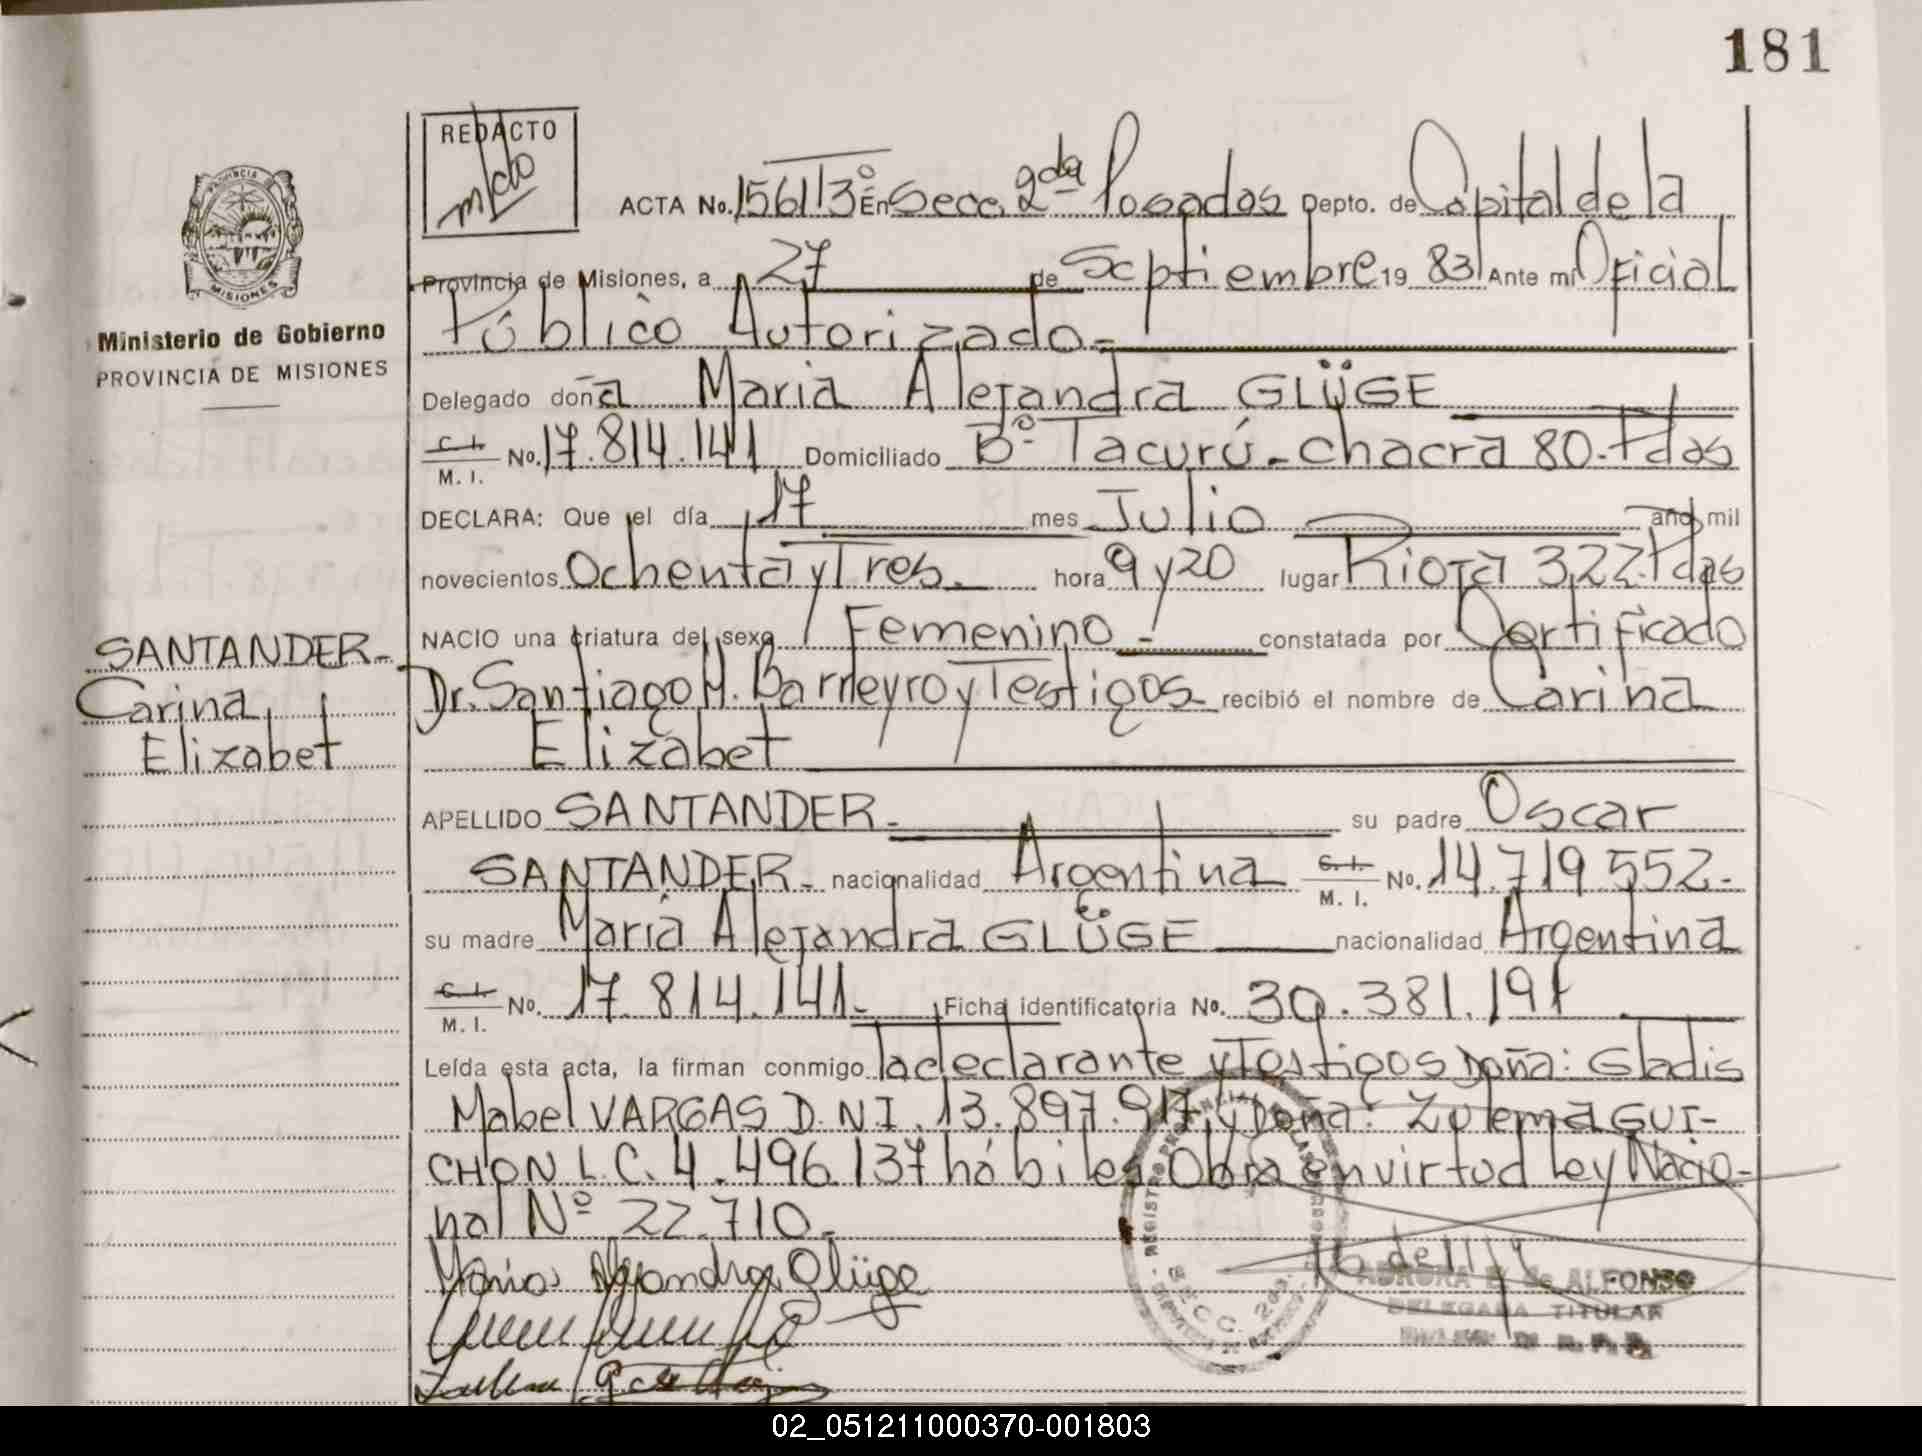 181
REDACTO
ACTA No. 1561/3º En Secc. 2da Posadas Depto. de Capital de la
PROVINCIA
MISIONES
Provincia de Misiones, a 27 de Septiembre 19 83 Ante mí Oficial
Ministerio de Gobierno
Público Autorizado.-
PROVINCIA DE MISIONES
Delegado doña Maria Alejandra GLÜGE
C. I. M. I. No. 17.814.141 Domiciliado Bº Tacurú - chacra 80.- Pdas
DECLARA: Que el día 17 mes Julio año mil
novecientos Ochenta y Tres.- hora 9 y 20 lugar Rioja 322. Pdas
NACIO una criatura del sexo Femenino.- constatada por Certificado
SANTANDER-
Carina
Elizabet
Dr. Santiago H. Barreyro y Testigos- recibió el nombre de Carina
Elizabet
APELLIDO SANTANDER.- su padre Oscar
SANTANDER- nacionalidad Argentina C. I. M. I. No. 14.719.552.-
su madre Maria Alejandra GLÜGE nacionalidad Argentina
C. I. M. I. No. 17.814.141.- Ficha identificatoria No. 30.381.191
Leída esta acta, la firman conmigo la declarante y Testigos Doña: Gladis
Mabel VARGAS D.N.I. 13.897.917 y Doña: Zulema GUI-
CHON L.C. 4.496.137 hábiles. Obra en virtud Ley Nacio-
nal Nº 22.710.-
Maria Alejandra Glüge
AURORA E. de ALFONSO
DELEGADA TITULAR
SECC. 2da.
02_051211000370-001803